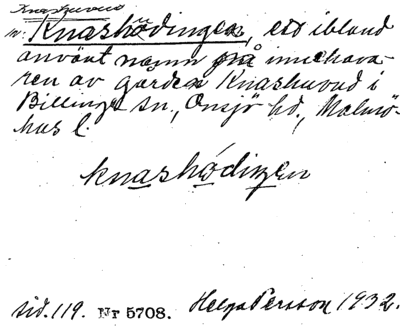 Knashuvud
m. Knashödingen, ett ibland
använt namn på inneha-
ren av gården Knashuvud i
Billinge sn., Onsjö hd., Malmö-
hus l.
knashödingen
sid. 119. Nr 5708. Helga Persson 1932.